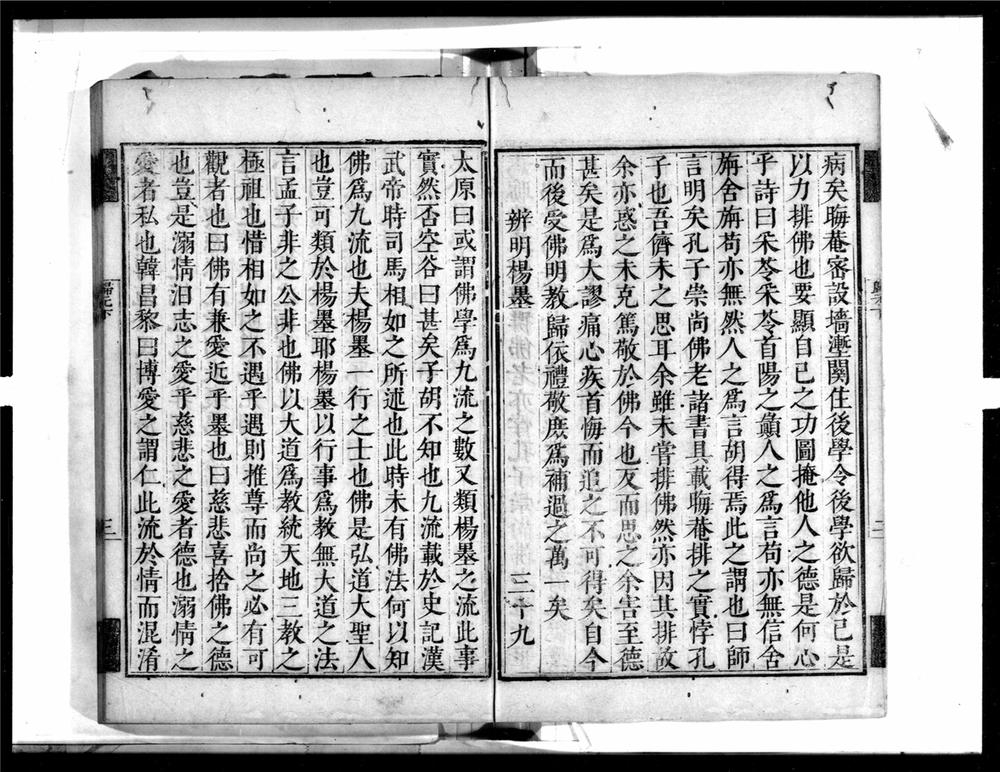 病矣晦菴審設墻壍関住後學令後學欲歸於己是
以力排佛也要顯自己之功圖掩他人之德是何心
乎詩曰采苓采苓首陽之巔人之為言苟亦無信舍
旃舍旃苟亦無然人之為言胡得焉此之謂也曰師
言明矣孔子崇尚佛老諸書具載晦菴排之實悖孔
子也吾儕未之思耳余雖未嘗排佛然亦因其排故
余亦惑之未克篤敬於佛今也反而思之余害至德
甚矣是為大謬痛心疾首悔而追之不可得矣自今
而後受佛明教歸依禮敬庶為補過之萬一矣
辨明楊墨 三十九
太原曰或謂佛學為九流之數又類楊墨之流此事
實然否空谷曰甚矣子胡不知也九流載於史記漢
武帝時司馬相如之所述也此時未有佛法何以知
佛為九流也夫楊墨一行之士也佛是弘道大聖人
也豈可類於楊墨耶楊墨以行事為教無大道之法
言孟子非之公非也佛以大道為教統天地三教之
極祖也惜相如之不遇乎遇則推尊而尚之必有可
觀者也曰佛有兼愛近乎墨也曰慈悲喜捨佛之德
也豈是溺情汨志之愛乎慈悲之愛者德也溺情之
愛者私也韓昌黎曰博愛之謂仁此流於情而混淆